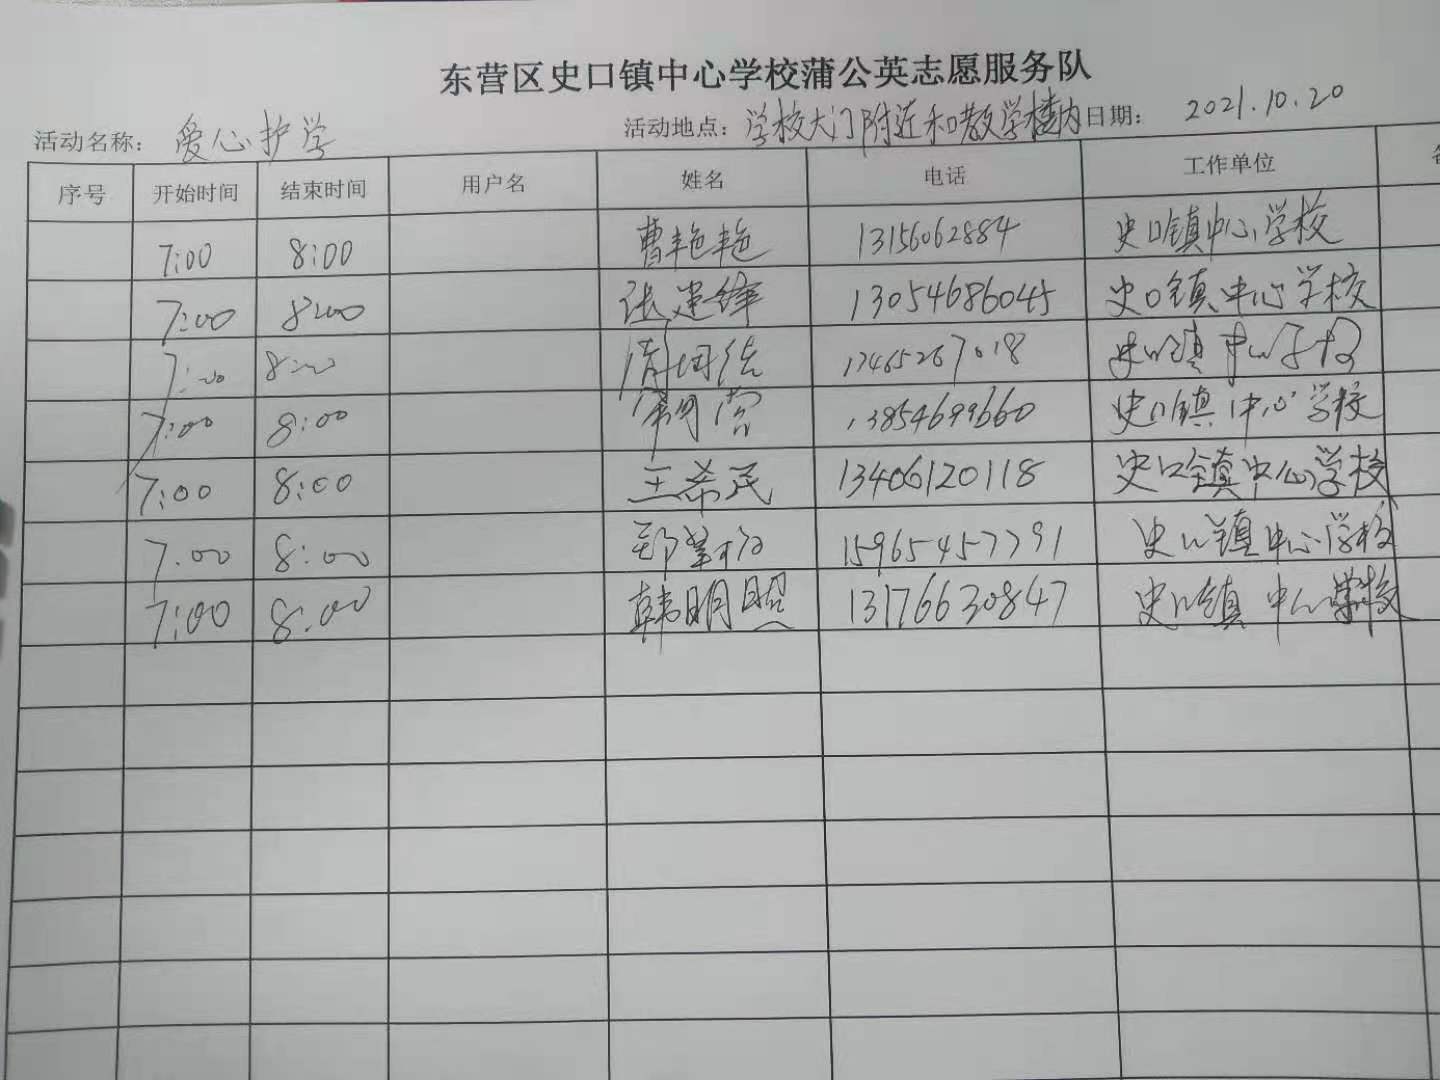 东营区史口镇中心学校蒲公英志愿服务队
活动名称： 爱心护学 活动地点：学校大门附近和教学楼内 日期： 2021.10.20
序号 开始时间 结束时间 用户名 姓名 电话 工作单位
7:00 8:00 曹艳艳 13156062884 史口镇中心学校
7:00 8:00 张建锋 13054686045 史口镇中心学校
7:00 8:00 史口镇中心学校
7:00 8:00 13854699660 史口镇中心学校
7:00 8:00 王希民 13406120118 史口镇中心学校
7:00 8:00 15965457791 史口镇中心学校
7:00 8:00 韩明照 13176630847 史口镇中心学校